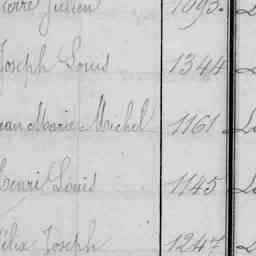 Pierre Julien 1095.
Joseph Louis 1344
Jean Marie Michel 1161
Henri Louis 1145
Félix Joseph 1247